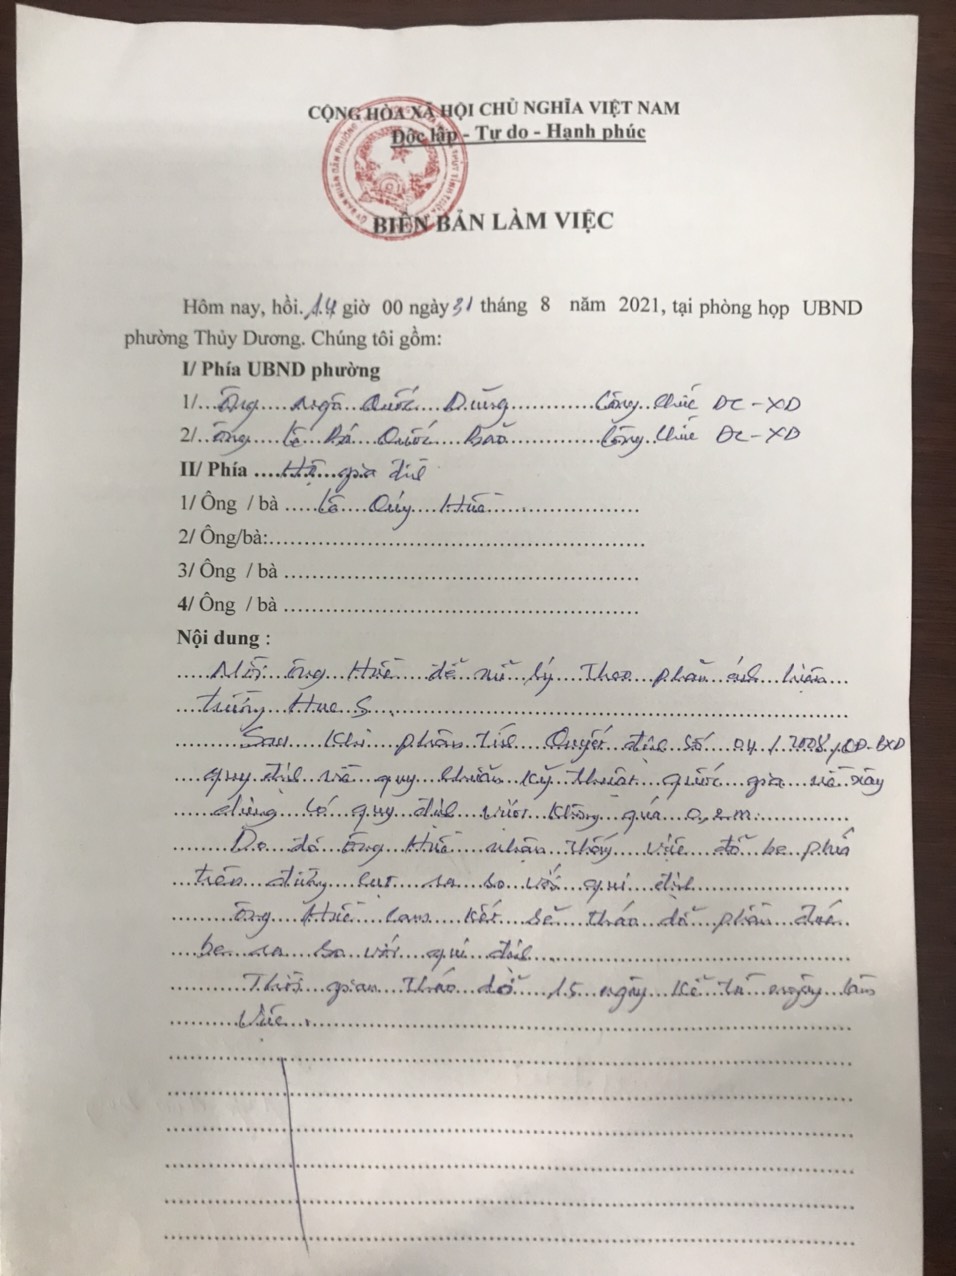 CỘNG HÒA XÃ HỘI CHỦ NGHĨA VIỆT NAM
Độc lập - Tự do - Hạnh phúc
BIÊN BẢN LÀM VIỆC
Hôm nay, hồi.14 giờ 00 ngày 31 tháng 8 năm 2021, tại phòng họp UBND
phường Thủy Dương. Chúng tôi gồm:
I/ Phía UBND phường
1/...Ông....Ngô...Quốc...Dũng............Công chức ĐC-XD
2/..Ông....Lê..Bá..Quốc...Bảo............Công chức ĐC-XD
II/ Phía ....Hộ...gia đình
1/ Ông / bà .....Lê...Quý...Huề......................
2/ Ông/bà:......................................................
3/ Ông / bà ...................................................
4/ Ông / bà ...................................................
Nội dung :
.....Mời ông Huề để xử lý theo phản ánh hiện
...trường Hue S...
Sau khi phân tích Quyết định số 04/2008/QĐ-BXD
quy định về quy chuẩn kỹ thuật quốc gia về xây
dựng có quy định vươn không quá 0,2m.
Do đó ông Huề nhận thấy việc đổ be phía
trên đường lươn ra so với qui định
Ông Huề cam kết sẽ tháo dỡ phần
be ra so với qui định
Thời gian tháo dỡ 15 ngày kể từ ngày làm
việc.